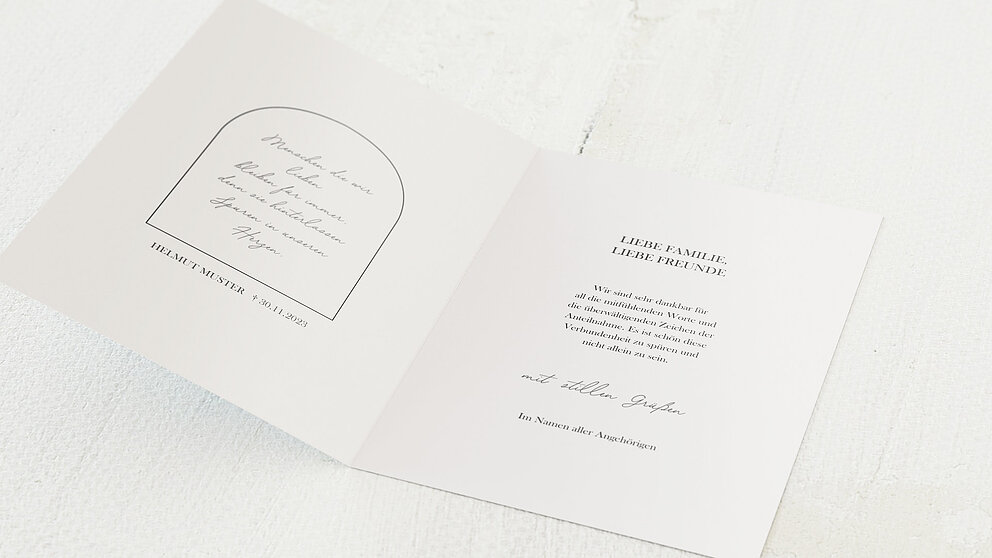 Menschen die wir
lieben
bleiben für immer,
denn sie hinterlassen
Spuren in unseren
Herzen.
HELMUT MUSTER ✝ 30.11.2023
LIEBE FAMILIE,
LIEBE FREUNDE
Wir sind sehr dankbar für
all die mitfühlenden Worte und
die überwältigenden Zeichen der
Anteilnahme. Es ist schön diese
Verbundenheit zu spüren und
nicht allein zu sein.
mit stillen Grüßen
Im Namen aller Angehörigen